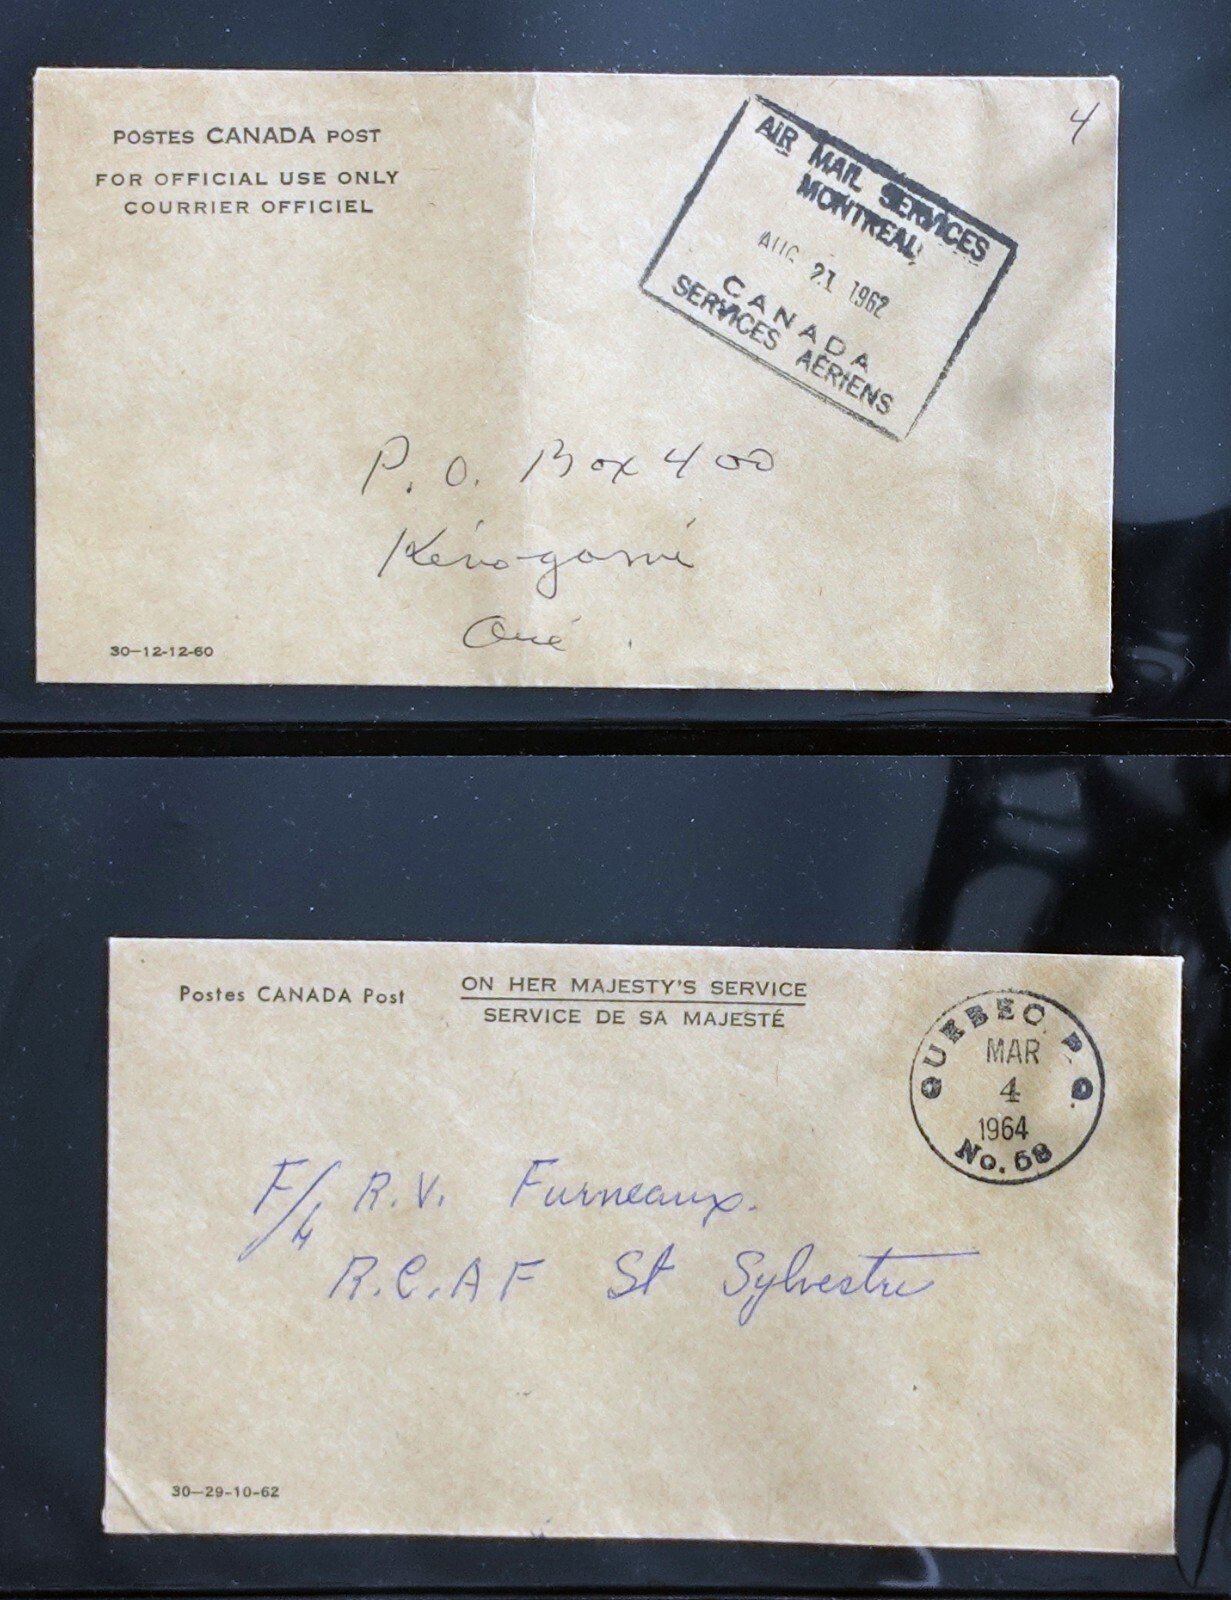 POSTES CANADA POST
FOR OFFICIAL USE ONLY
COURRIER OFFICIEL
4
AIR MAIL SERVICES
MONTREAL,
AUG 21 1962
CANADA
SERVICES AÉRIENS
P.O. Box 400
Kénogami
Qué.
30-12-12-60
Postes CANADA Post
ON HER MAJESTY'S SERVICE
SERVICE DE SA MAJESTÉ
QUEBEC. P. Q.
MAR
4
1964
No. 58
F/L R.V. Furneaux.
R.C.A F St Sylvestre
30-29-10-62